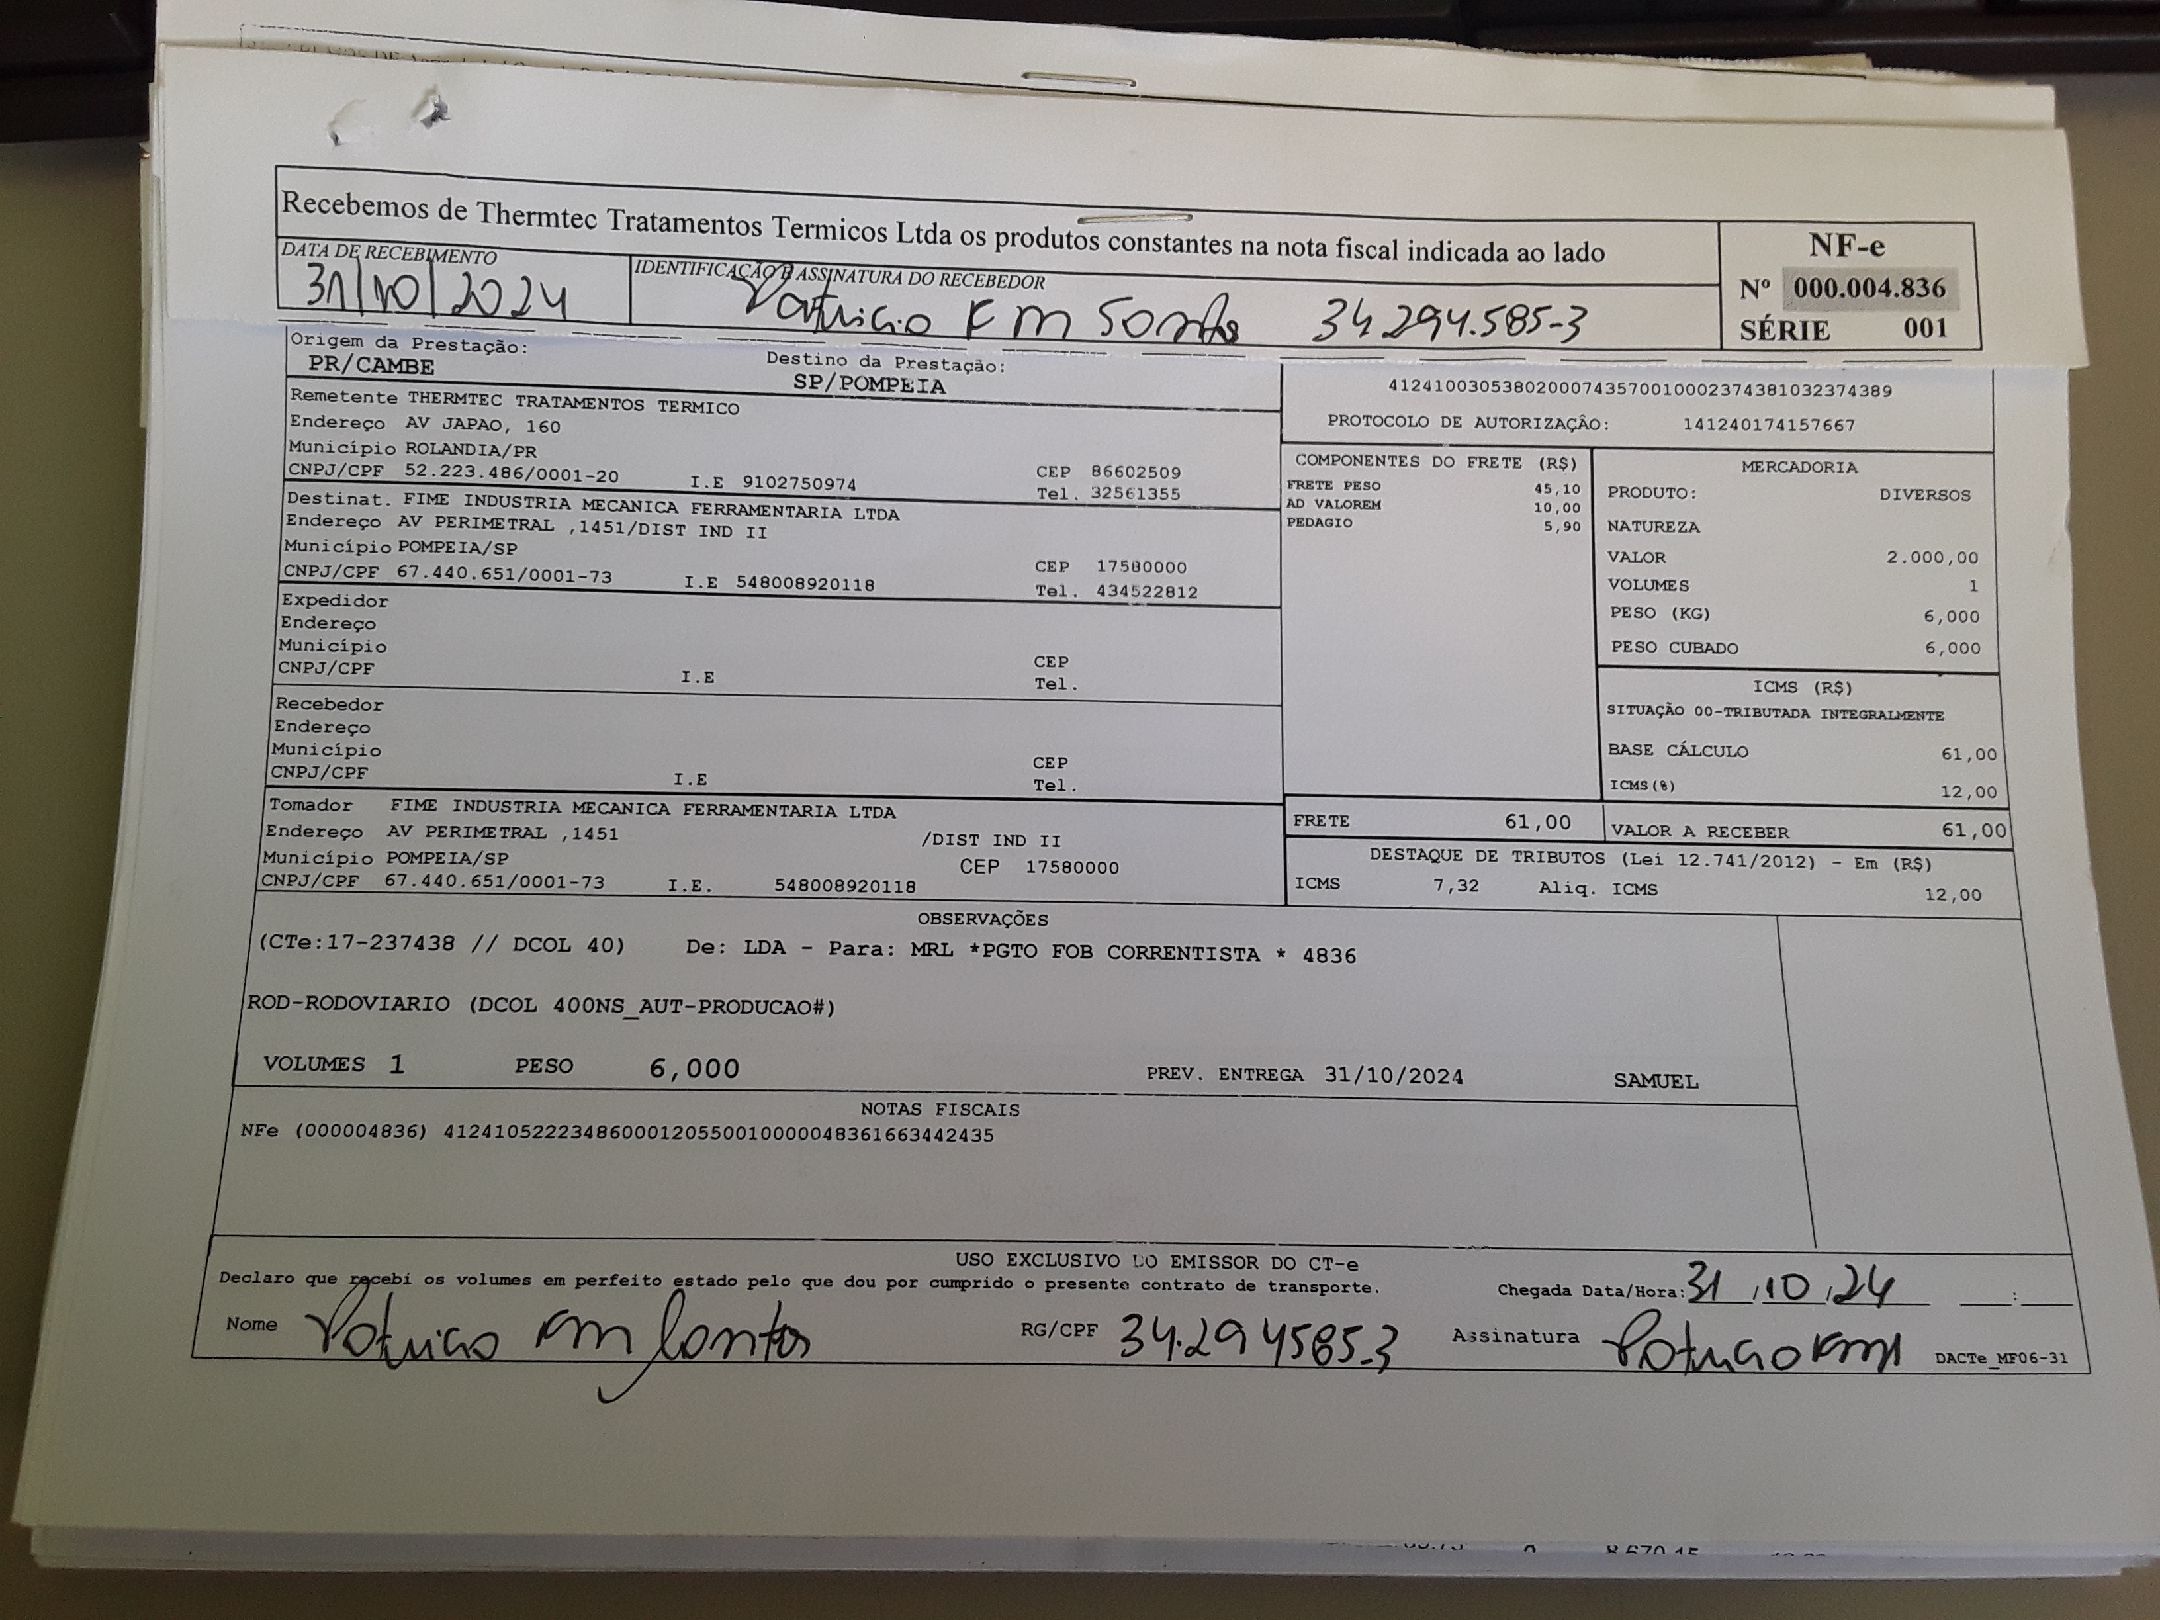 Recebemos de Thermtec Tratamentos Termicos Ltda os produtos constantes na nota fiscal indicada ao lado
NF-e
Nº 000.004.836
SÉRIE 001
DATA DE RECEBIMENTO
31/10/2024
IDENTIFICAÇÃO E ASSINATURA DO RECEBEDOR
Patricia F M Santos 34.294.585-3
Origem da Prestação:
PR/CAMBE
Destino da Prestação:
SP/POMPEIA
Remetente THERMTEC TRATAMENTOS TERMICO
Endereço AV JAPAO, 160
Município ROLANDIA/PR
CNPJ/CPF 52.223.486/0001-20 I.E 9102750974
CEP 86602509
Tel. 32561355
Destinat. FIME INDUSTRIA MECANICA FERRAMENTARIA LTDA
Endereço AV PERIMETRAL ,1451/DIST IND II
Município POMPEIA/SP
CNPJ/CPF 67.440.651/0001-73 I.E 548008920118
CEP 17580000
Tel. 434522812
Expedidor
Endereço
Município
CNPJ/CPF I.E
CEP
Tel.
Recebedor
Endereço
Município
CNPJ/CPF I.E
CEP
Tel.
Tomador FIME INDUSTRIA MECANICA FERRAMENTARIA LTDA
Endereço AV PERIMETRAL ,1451 /DIST IND II
Município POMPEIA/SP CEP 17580000
CNPJ/CPF 67.440.651/0001-73 I.E. 548008920118
41241003053802000743570010002374381032374389
PROTOCOLO DE AUTORIZAÇÂO: 141240174157667
COMPONENTES DO FRETE (R$)
FRETE PESO 45,10
AD VALOREM 10,00
PEDAGIO 5,90
MERCADORIA
PRODUTO: DIVERSOS
NATUREZA
VALOR 2.000,00
VOLUMES 1
PESO (KG) 6,000
PESO CUBADO 6,000
ICMS (R$)
SITUAÇÃO 00-TRIBUTADA INTEGRALMENTE
BASE CÁLCULO 61,00
ICMS(%) 12,00
FRETE 61,00 VALOR A RECEBER 61,00
DESTAQUE DE TRIBUTOS (Lei 12.741/2012) - Em (R$)
ICMS 7,32 Aliq. ICMS 12,00
OBSERVAÇÕES
(CTe:17-237438 // DCOL 40) De: LDA - Para: MRL *PGTO FOB CORRENTISTA * 4836
ROD-RODOVIARIO (DCOL 400NS_AUT-PRODUCAO#)
VOLUMES 1 PESO 6,000 PREV. ENTREGA 31/10/2024 SAMUEL
NOTAS FISCAIS
NFe (000004836) 41241052223486000120550010000048361663442435
USO EXCLUSIVO DO EMISSOR DO CT-e
Declaro que recebi os volumes em perfeito estado pelo que dou por cumprido o presente contrato de transporte.
Chegada Data/Hora: 31/10/24 __:__
Nome Patricia F M Santos RG/CPF 34.2945853 Assinatura Patricia FM
DACTe_MF06-31